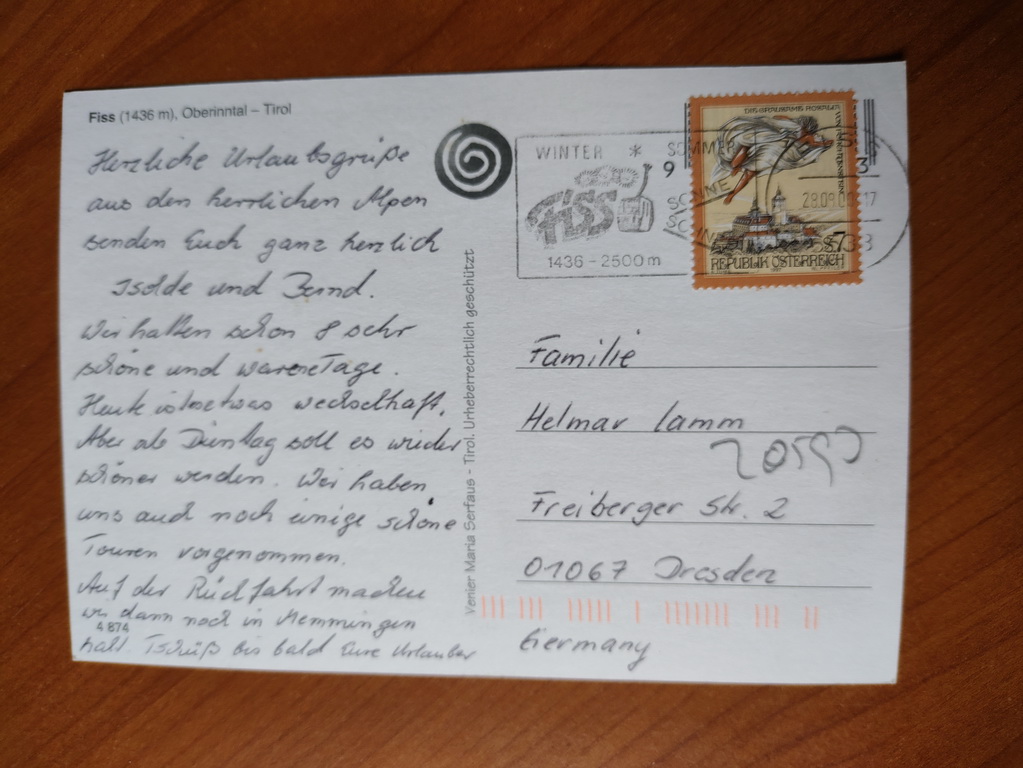 Fiss (1436 m), Oberinntal – Tirol
Herzliche Urlaubsgrüße
aus den herrlichen Alpen
senden Euch ganz herzlich
Isolde und Bernd.
Wir hatten schon 8 sehr
schöne und warme Tage.
Heute ist es etwas wechselhaft.
Aber ab Dienstag soll es wieder
schöner werden. Wir haben
uns auch noch einige schöne
Touren vorgenommen.
Auf der Rückfahrt machen
wir dann noch in Memmingen
4 874
halt. Tschüß bis bald Eure Urlauber
Venier Maria Serfaus - Tirol. Urheberrechtlich geschützt
WINTER * SOMMER
SONNE
FISS
1436 - 2500 m
6533
REPUBLIK ÖSTERREICH
S 7
Familie
Helmar Lamm
Freiberger Str. 2
01067 Dresden
Germany